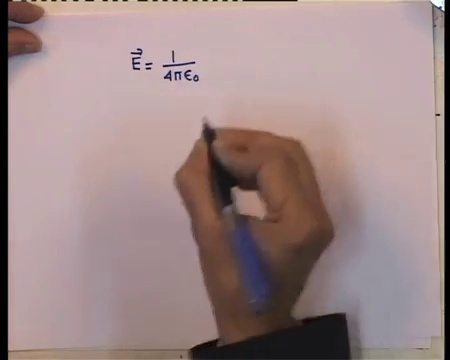 $\vec{E} = \frac{1}{4\pi\epsilon_0}$